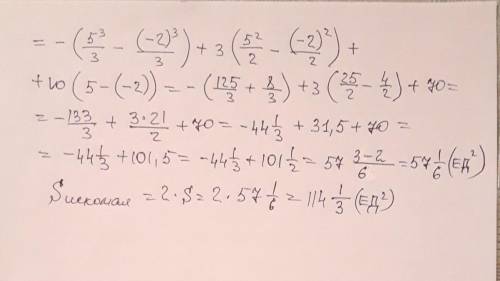 = - (5³/3 - (-2)³/3) + 3 (5²/2 - (-2)²/2) +
+ 10 (5 - (-2)) = - (125/3 + 8/3) + 3 (25/2 - 4/2) + 70 =
= - 133/3 + 3·21/2 + 70 = - 44 1/3 + 31,5 + 70 =
= - 44 1/3 + 101,5 = - 44 1/3 + 101 1/2 = 57 3-2/6 = 57 1/6 (ЕД²)
Sискомая = 2·S = 2·57 1/6 = 114 1/3 (ЕД²)